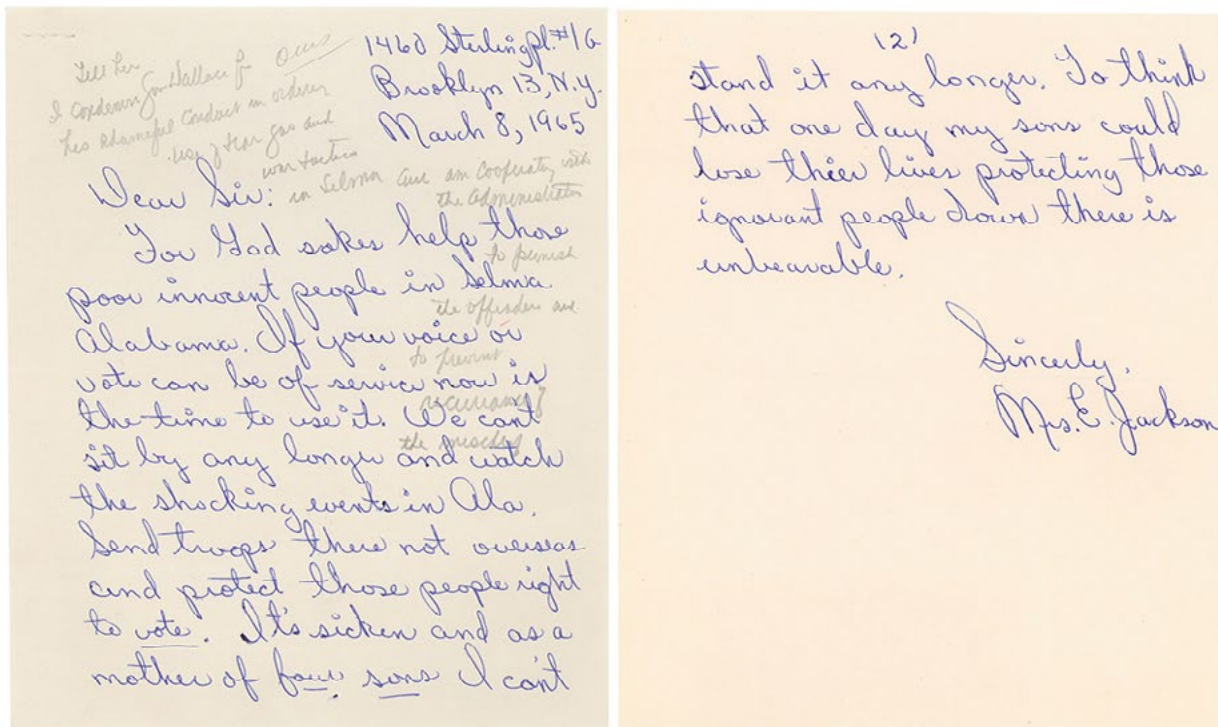 1460 Sterling pl. #1G
Brooklyn 13, N.Y.
March 8, 1965
Tell her
I condemn Gov Wallace for
his shameful conduct in ordering
use of tear gas and
war tactics
in Selma and am cooperating with
the administration
to punish
the offenders and
to prevent
recurrence of
the
Dear Sir:
For God sakes help those
poor innocent people in Selma
Alabama. If your voice or
vote can be of service now is
the time to use it. We can't
sit by any longer and watch
the shocking events in Ala.
Send troops there not overseas
and protect those people right
to vote. It's sicken and as a
mother of four sons I can't
(2)
stand it any longer. To think
that one day my sons could
lose thier lives protecting those
ignorant people down there is
unbearable.
Sincerly,
Mrs. E. Jackson